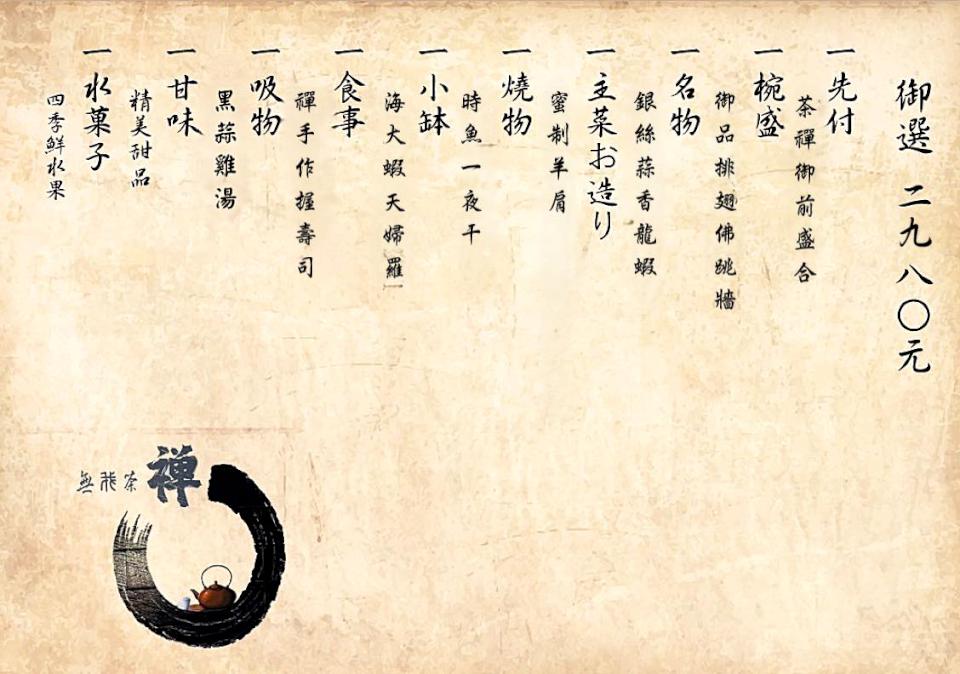 御選 二九八〇元
一先付
茶禪御前盛合
一椀盛
御品排翅佛跳牆
一名物
銀絲蒜香龍蝦
一主菜お造り
蜜制羊肩
一燒物
時魚一夜干
一小缽
海大蝦天婦羅
一食事
禪手作握壽司
一吸物
黑蒜雞湯
一甘味
精美甜品
一水菓子
四季鮮水果
禪
茶
無